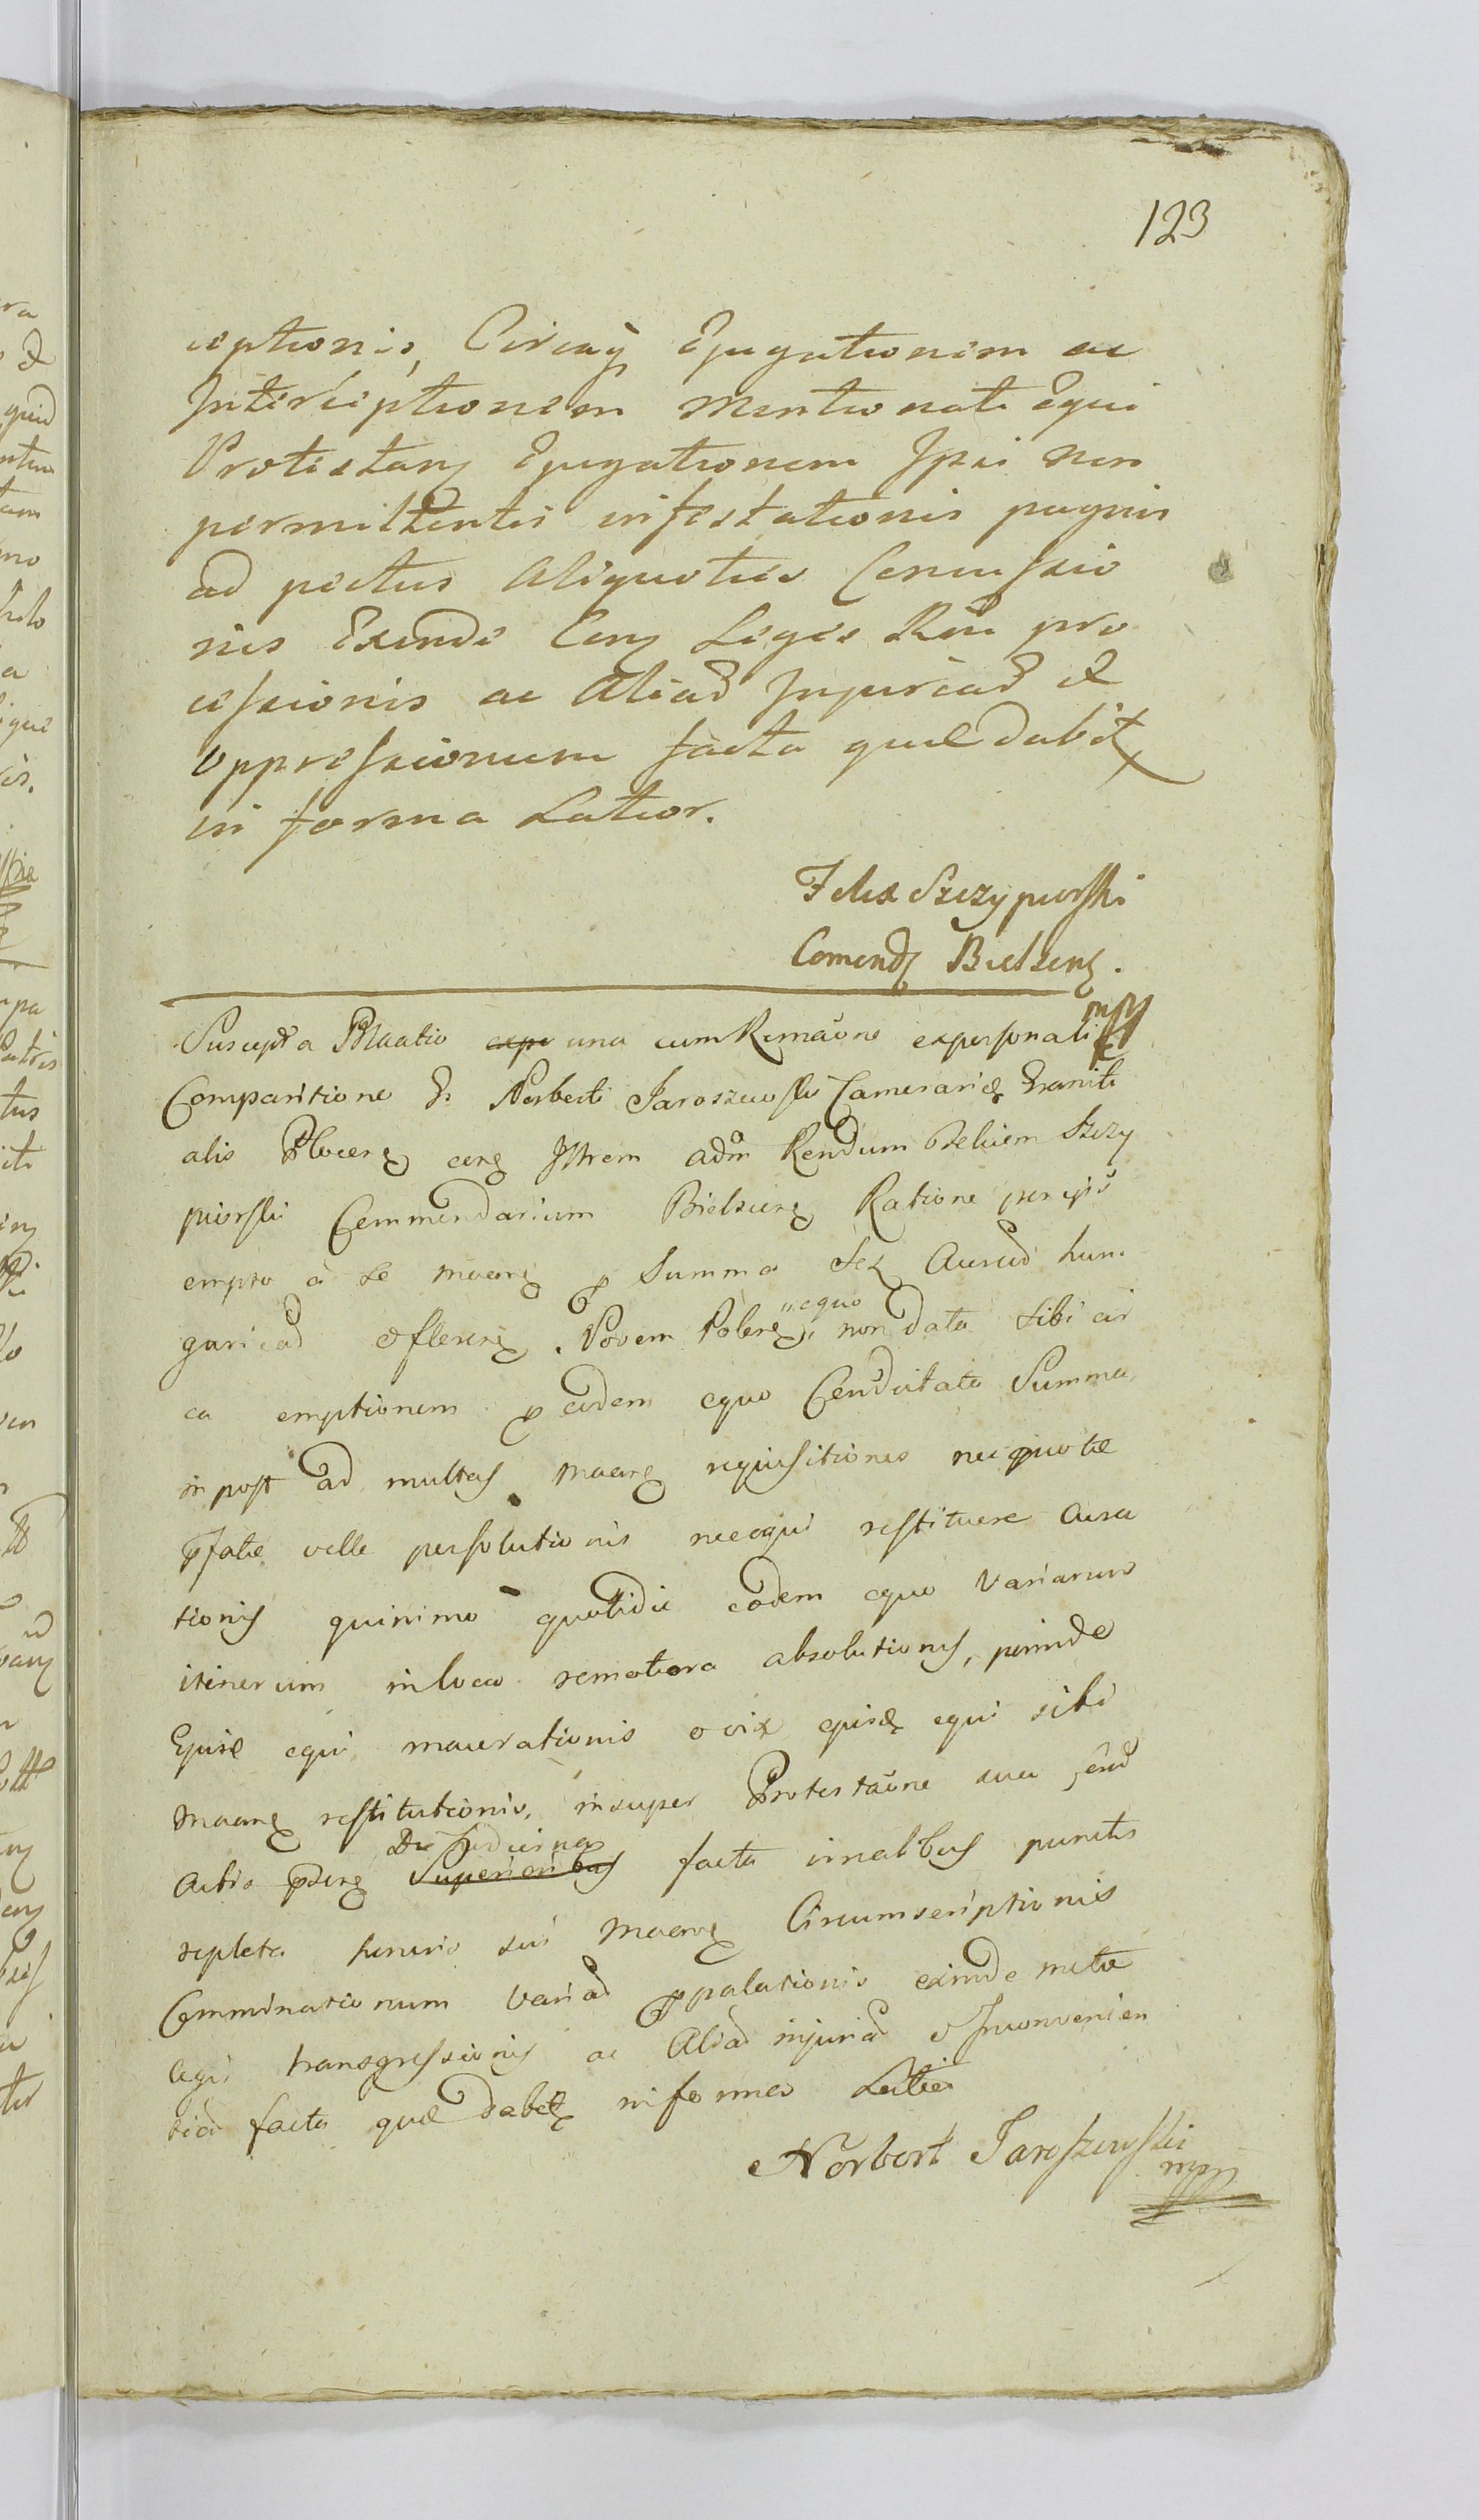 123
ceptionis, Circaq Ejugationem ac
Interceptionem mentionati Equi
Protestanẛ Ejugationem Ipsi non
permittentis infestationis pugnis
ad pectus Aliquoties Concussio
nis Exinde Legis Rni pro
cessionis ac Aliad Injuriad et
oppressionum facta quæ dabit
in forma Latior.
Felix Szczypiorski
Comend Bielsens.
Suscepta Mtio una cum Rema͠one ex personali mp
Comparitione G. Norberti Jaroszewski Camerarii Graniti
alis Plocen cong Istrem adm Rendum Felicem Szczy
piorski Commendarium Bielscens Ratione percepti
empto à se maen p Summa Sex Aureod hun
garicad et flsenq Novem Polens, equo non data sibi cir
ca emptionem p eodem equo Condictata Summa,
in post ad multas maen requisitiones nec quotæ
pfatæ velle persolutionis nec equi restituere Cura
tionis quinimo quotidie eodem equo Variarum
itinerum in loca remotiora absolutionis, perinde
Ejusd equi macerationis et vix ejusd equi sibi
maen restitutionis, insuper Protesta͠one sua coud
Actis pden Superioribus Die Hodierna facta irrealibus punctis
repleta honoris sui maen Circumscriptionis
Comminationum Variad ppalationis exinde metæ
legis transgressionis ac Aliad injuriad et Inconvenien
tiad facta quæ dabit in forma Latiori
Norbert Jaroszewski
mpp